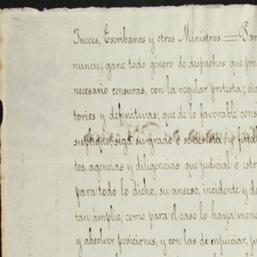 Jueces, Escribanos y otros Ministros.— Par
nuncie, gane todo genero de despachos que pre
necesario censuras, con la regular protesta; oig
torios y definitivas; que de lo favorable cons
suplique, siga su grado o
tos, agencias y diligencias que judicial o estr
para todo lo dicho, su anecso, incidente y de
tan ámplio, como para el caso lo haya mene
y absolver posiciones, y con las de enjuiciar, ju